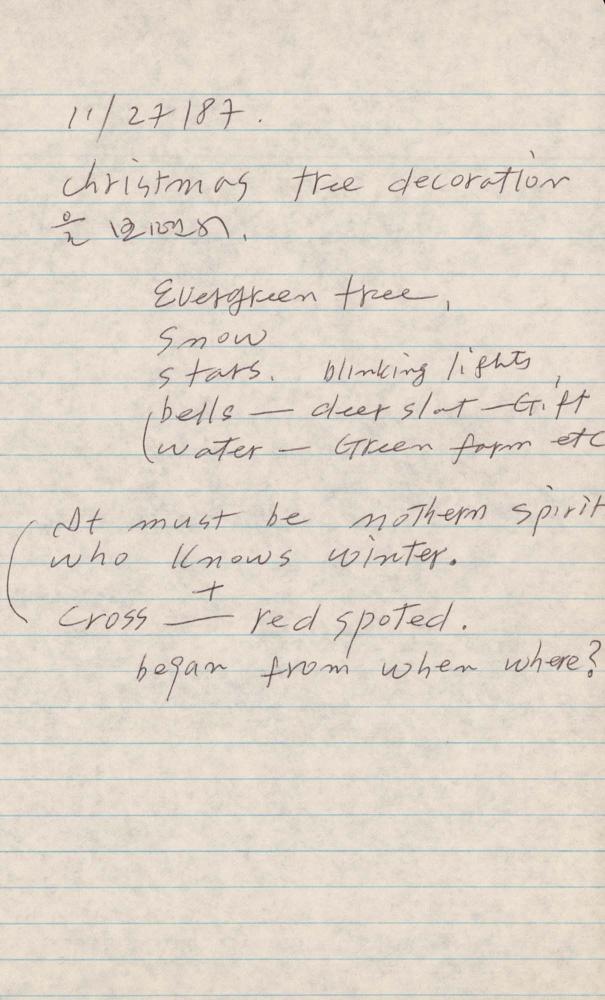 11/27/87.
christmas tree decoration
을 보면서.
Evergreen tree,
snow
stars. blinking lights,
bells — deer slat — Gift
water — Green farm etc
It must be nothern spirit
who knows winter.
+
cross — red spoted.
began from when where?